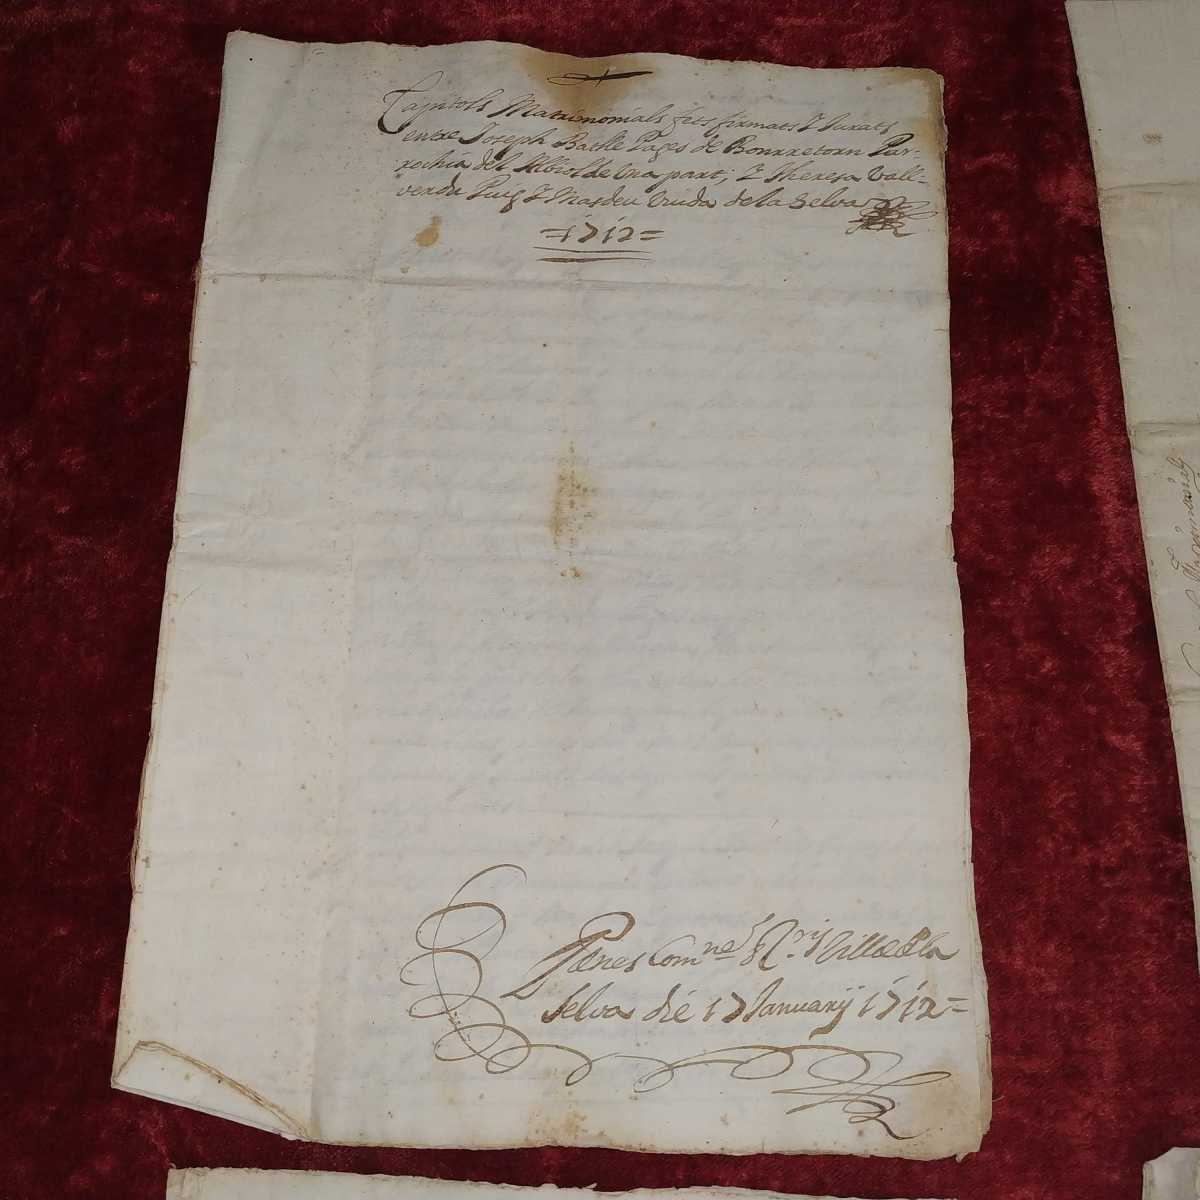 Capitols Matrimonials fets firmats Y Jurats
entre Joseph Batlle Pages de Bourretorn Par-
rochia del Albiol de Una part; Y Theresa Vall-
verdu Puig Y Masdeu Viuda de la Selva
=1712=
Penes Comne Villae de la
Selva die 17 Januarij 1712=